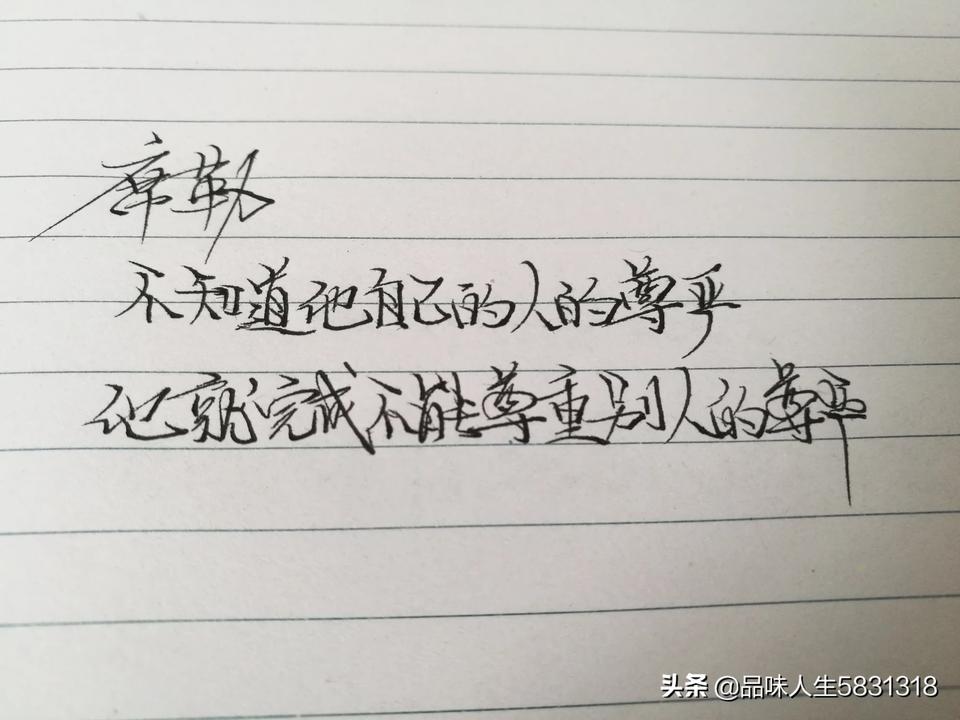 席勒
不知道他自己的人的尊严
他就完成不能尊重别人的尊严
头条 @品味人生5831318